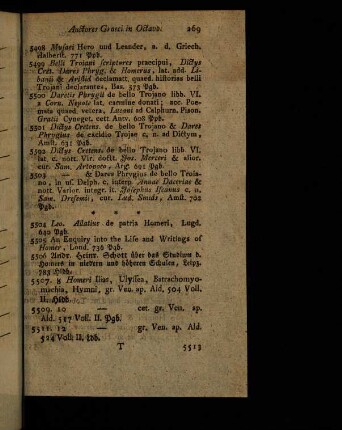 Auctores Graeci in Octavo. 269
5498 Musaei Hero und Leander, a. d. Griech.
Halberst. 771 Pgb.
5499 Belli Troiani scriptores praecipui, Dictys
Cret. Dares Phryg. & Homerus, lat. add. Li-
banii & Aristid declamatt. quaed. historias belli
Trojani declarantes, Bas. 573 Pgb.
5500 Daretis Phrygii de bello Trojano libb. VI.
a Corn. Nepote lat. carmine donati; acc. Poe-
mata quaed. vetera, Lucani ad Calphurn. Pison.
Gratii Cyneget. cett. Antv. 608 Pgb.
5501 Dictys Cretens. de bello Trojano & Dares
Phrygius de excidio Trojae c. n. ad Dictym,
Amst. 631 Pgb.
5502 Dictys Cretens. de bello Trojano libb. VI.
lat. c. nott. Vir. doctt. Jos. Merceri & alior.
cur. Sam. Artopoeo, Arg. 691 Pgb.
5503 — & Dares Phrygius de bello Troia-
no, in us. Delph. c. interp. Annae Daceriae &
nott. Varior. integr. it. Josephus Iscanus c. n.
Sam. Dresemii, cur. Lud. Smids, Amst. 702
Pgb.
* * *
5504 Leo. Allatius de patria Homeri, Lugd.
640 Pgb.
5505 An Enquiry into the Life and Writings of
Homer, Lond. 736 Pgb.
5506 Andr. Heinr. Schott über das Studium d.
Homers in niedern und höheren Schulen, Leipz.
783 Hldb.
5507. 8 Homeri Ilias, Ulyssea, Batrachomyo-
machia, Hymni, gr. Ven. ap. Ald. 504 Voll.
II. Hldb.
5509. 10 — — cet. gr. Ven. ap.
Ald. 517 Voll. II. Pgb.
5511. 12 — — gr. Ven. ap. Ald.
524 Voll. II. Ldb.
T 5513